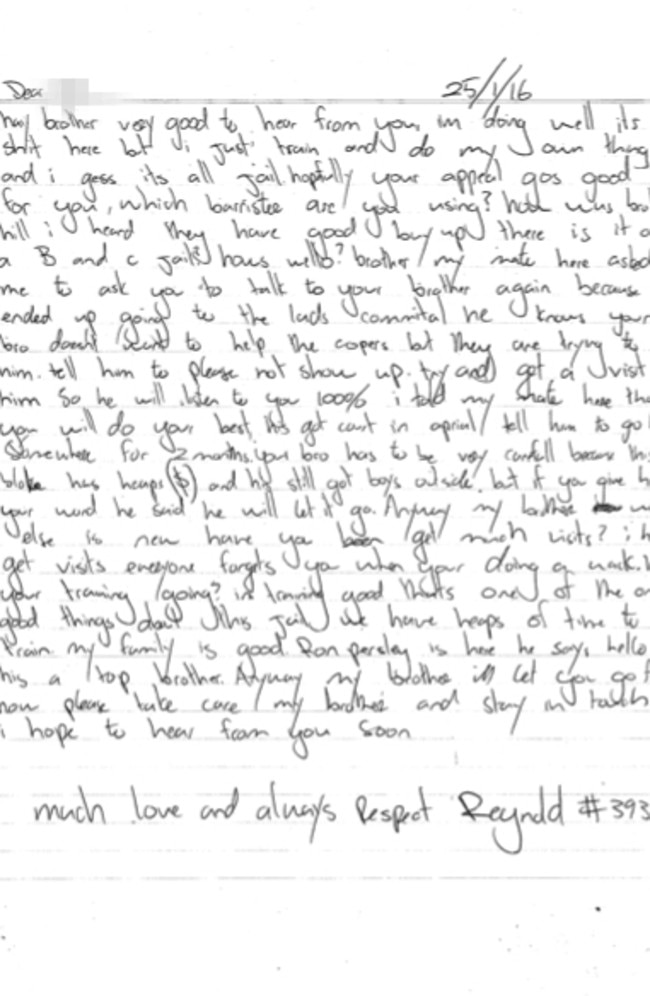 Dear
25/1/16
hay brother very good to hear from you, im doing well its
shit here but i just train and do my own thing
and i gess its all jail. hopfully your appeal gos good
for you, which barrister are you using? how was
hill i heard they have good buy up there is it
a B and c jail? hows wello? brother my mate here
me to ask you to talk to your brother again because
ended up going to the lads commital he knows your
bro doesnt want to help the copers but they are trying to
him. tell him to please not show up. try and get a visit
him So he will listen to you 100% i told my mate here
you will do your best, his got court in aprial tell him to go
Somewhere for 2 months. your bro has to be very carfull because
bloke has heaps ($) and his still got boys outside. but if you give
your word he said he will let it go. Anyway my brother
else is new have you been get much visits?
get visits everyone forgets ya when your doing a wack.
your training going? im training good thats one of the
good things about this jail we have heaps of time to
train. my family is good Ron persley is here he says hello
his a top brother. Anyway my brother ill let you go
now please take care my brother and stay in touch
i hope to hear from you soon
much love and always Respect Reynold #393